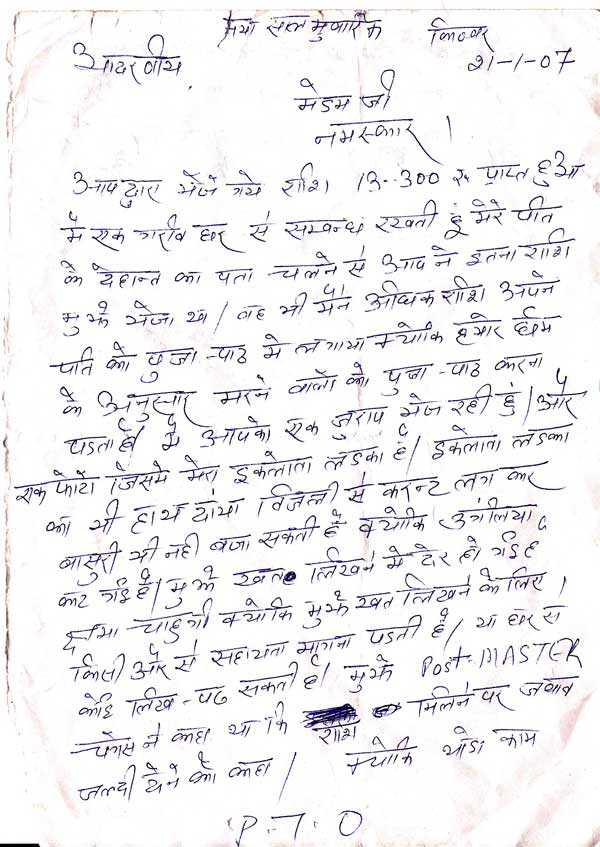 नया साल मुबारिक
किन्नर
आदरणीय
21-1-07
मेडम जी
नमस्कार ।
आप द्वारा भेजे गये राशि 13-300 रू प्राप्त हुआ
मै एक गरीब घर से सम्बन्ध रखती हूं मेरे पीत
के देहान्त का पता चलने से आप ने इतना राशि
मुझे भेजा था / वह भी मैने अधिक राशि अपने
पति को पुजा-पाठ मे लगाया क्योकि हमारे धर्म
के अनुसार मरने वालो को पुजा-पाठ करना
पडता है / मै आपको एक जुराप भेज रही हुं / और
एक फोटो जिसमे मेरा इकलौता लडका है / इकलौता लडका
का भी हाथ दांया विजली से करन्ट लग कर
बासुरी भी नही बजा सकती है क्योकि उंगलिया
कट गई है / मुझे खत लिखने मे देर हो गई है
क्षमा चाहुगी क्योकि मुझे खत लिखने के लिए
किसी और से सहायता मागना पडती है / या घर से
कोई लिख-पढ सकती है / मुझे Post-MASTER
ने कहा था कि राशि मिलने पर जवाब
जल्दी देने को कहा / क्योकि थोडा काम
P.T.O